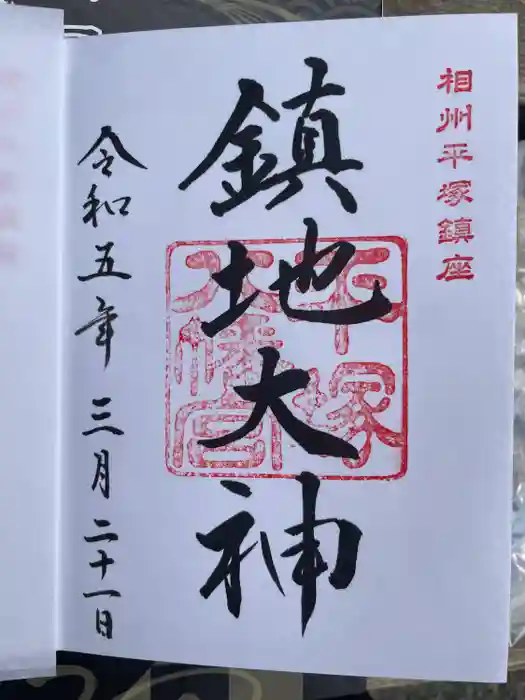 相州平塚鎮座
鎮地大神
平塚
八幡宮
令和五年 三月 二十一日